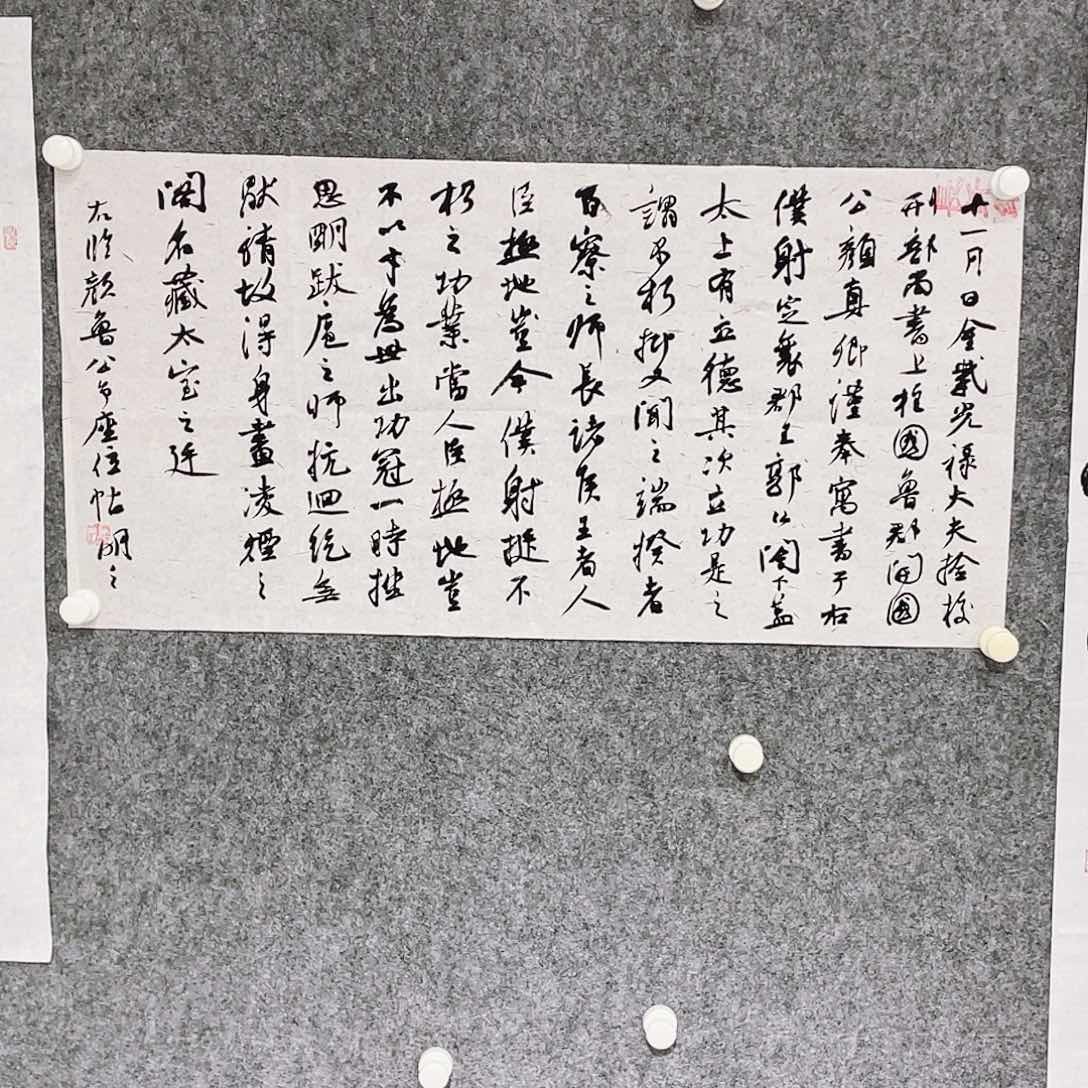 十一月日金紫光禄大夫捡校
刑部尚書上柱國魯郡開國
公顔真卿謹奉寓書于右
僕射定襄郡王郭公閣下蓋
太上有立德其次立功是之
謂不朽抑又聞之端揆者
百寮之師長諸侯王者人
臣極地豈今僕射挺不
朽之功業當人臣極地豈
不以才為世出功冠一時挫
思明跋扈之師抗迴紇無
猒請故得身畫凌煙之
閣名藏太室之廷
右臨顔魯公爭座位帖 明之